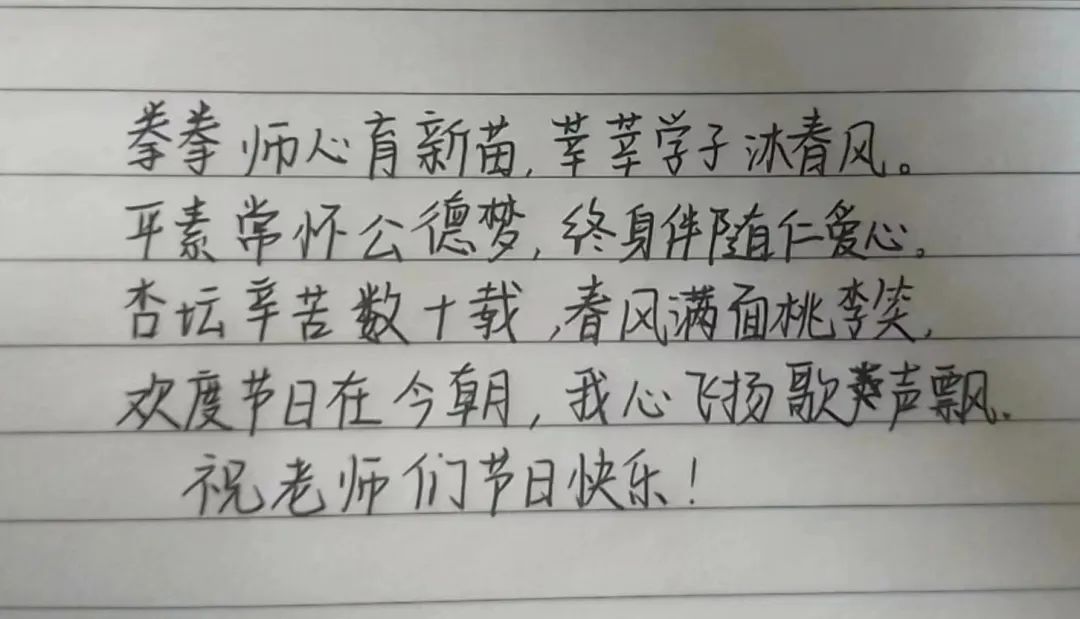 拳拳师心育新苗,莘莘学子沐春风。
平素常怀公德梦,终身伴随仁爱心。
杏坛辛苦数十载,春风满面桃李笑,
欢度节日在今朝,我心飞扬歌声飘.
祝老师们节日快乐!